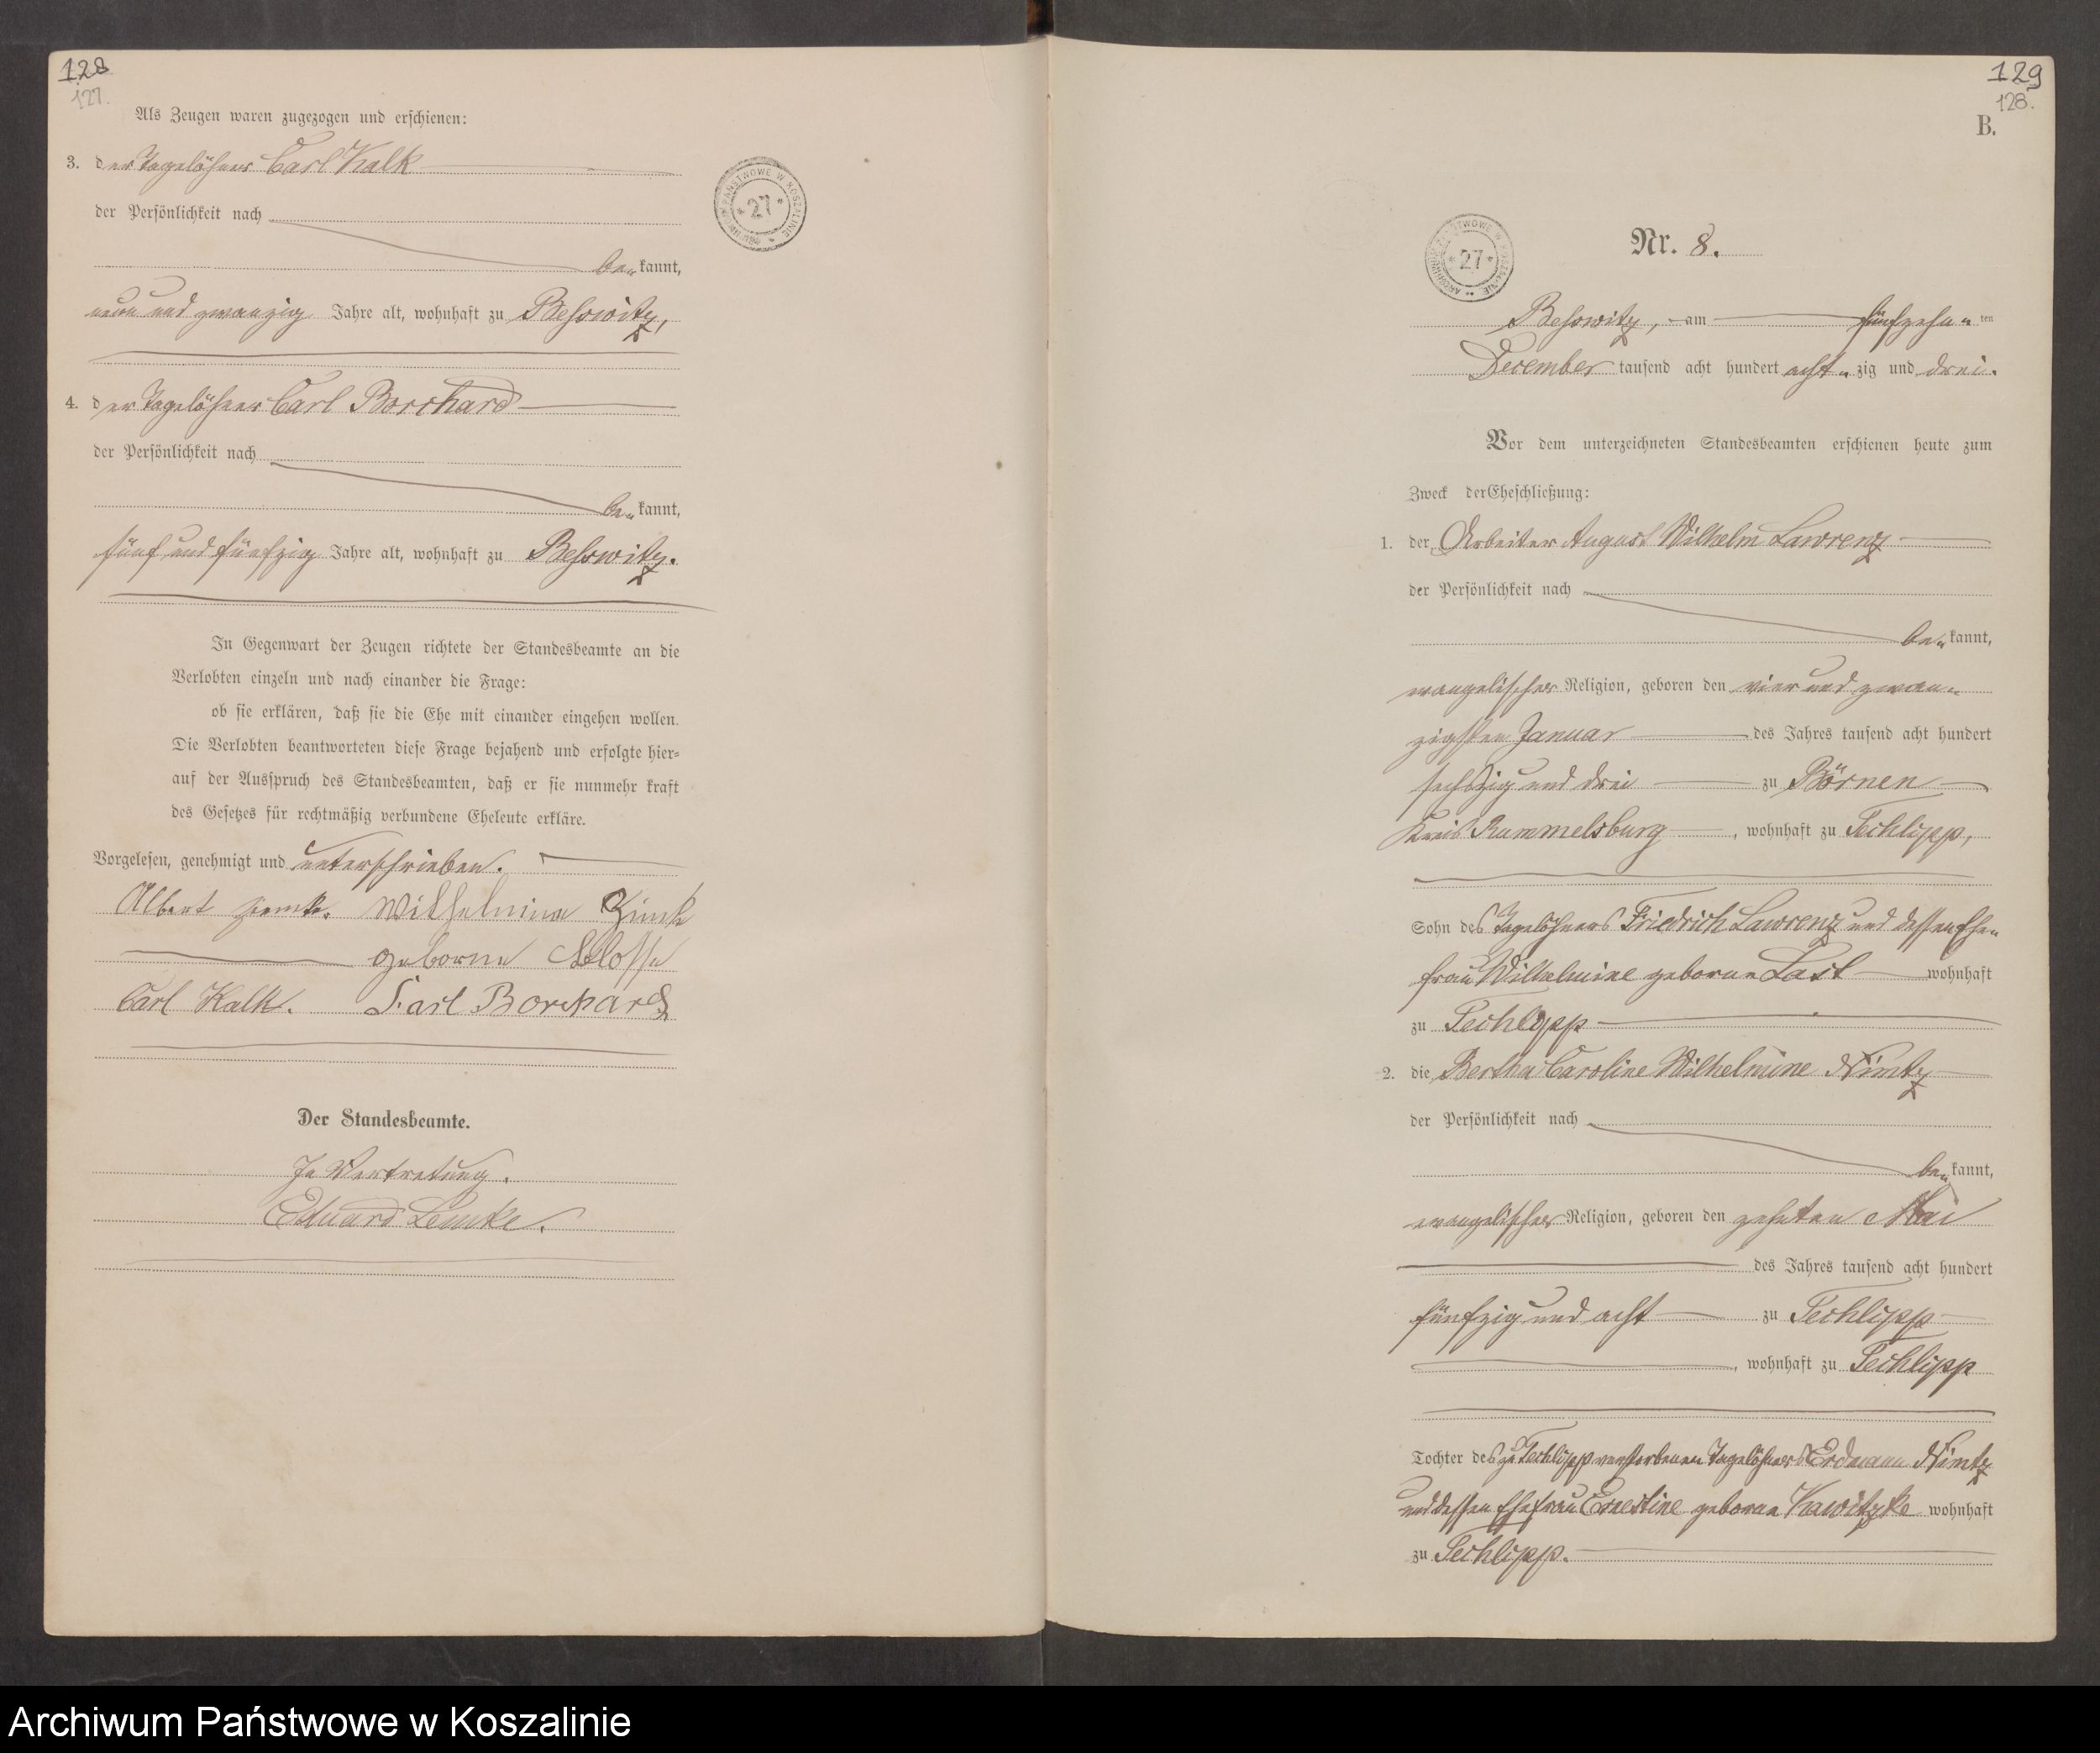 128
127.
Als Zeugen waren zugezogen und erschienen:
3. der Tagelöhner Carl Kalk
der Persönlichkeit nach
be„kannt,
neun und zwanzig Jahre alt, wohnhaft zu Beßwitz,
4. der Tagelöhner Carl Borchard
der Persönlichkeit nach
be„kannt,
fünf und fünfzig Jahre alt, wohnhaft zu Beßwitz.
In Gegenwart der Zeugen richtete der Standesbeamte an die
Verlobten einzeln und nach einander die Frage:
ob sie erklären, daß sie die Ehe mit einander eingehen wollen.
Die Verlobten beantworteten diese Frage bejahend und erfolgte hier-
auf der Ausspruch des Standesbeamten, daß er sie nunmehr kraft
des Gesetzes für rechtmäßig verbundene Eheleute erkläre.
Vorgelesen, genehmigt und unterschrieben.
Albert Wilhelmine
geborne
Carl Kalk. Carl Borchard
Der Standesbeamte.
In Vertretung.
Eduard Lemke.
27
129
128.
B.
27
Nr. 8.
Beßwitz, am fünfzehn„ten
December tausend acht hundert acht„zig und drei.
Vor dem unterzeichneten Standesbeamten erschienen heute zum
Zweck der Eheschließung:
1. der Arbeiter August Wilhelm Lawrenz
der Persönlichkeit nach
be„kannt,
evangelischer Religion, geboren den vier und zwan„
zigsten Januar des Jahres tausend acht hundert
sechszig und drei zu Börnen
Kreis Rummelsburg, wohnhaft zu Techlipp,
Sohn des Tagelöhners Friedrich Lawrenz und dessen Ehe„
frau Wilhelmine geborne Last wohnhaft
zu Techlipp
2. die Bertha Caroline Wilhelmine Nimtz
der Persönlichkeit nach
be„kannt,
evangelischer Religion, geboren den zehnten Mai
des Jahres tausend acht hundert
fünfzig und acht zu Techlipp
, wohnhaft zu Techlipp
Tochter des zu Techlipp verstorbenen Tagelöhners Erdmann Nimtz
und dessen Ehefrau Ernestine geborne Kawitzke wohnhaft
zu Techlipp.
Archiwum Państwowe w Koszalinie